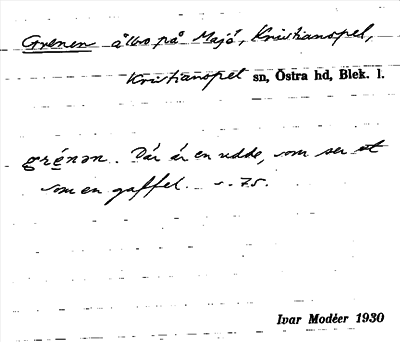 Grenen ålbo på Majö, Kristianopel,
Kristianopel sn, Östra hd, Blek. l.
grénən. Där är en udde, som ser ut
som en gaffel. S. 75.
Ivar Modéer 1930